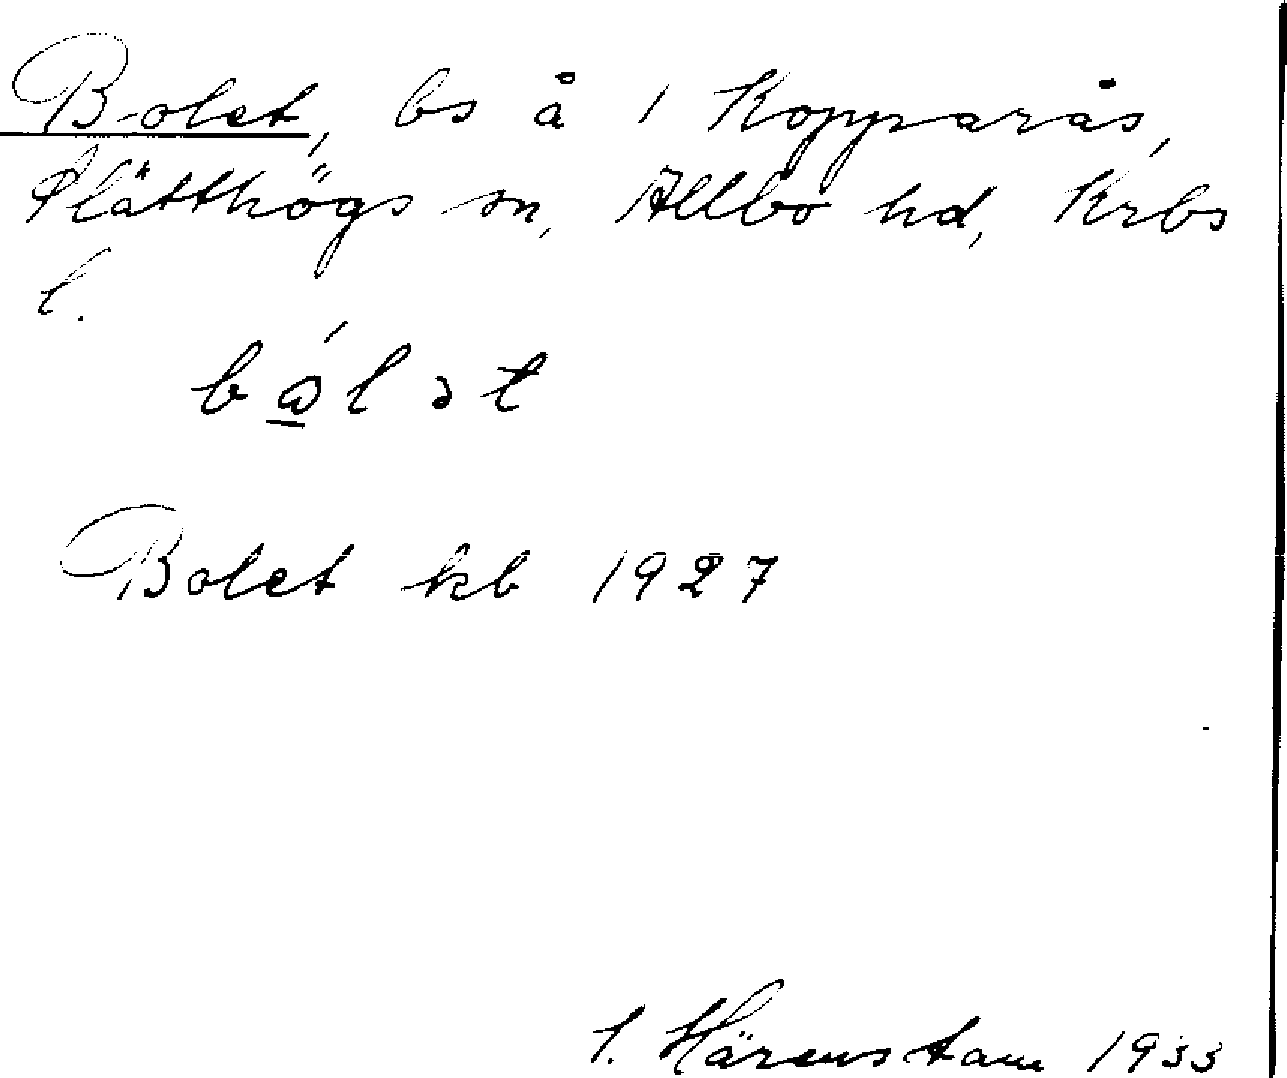 Bolet, bs å 1 Kopparås,
Slätthögs sn, Allbo hd, Krbs
l.
bώ̲lət
Bolet kb 1927
S. Härenstam 1933